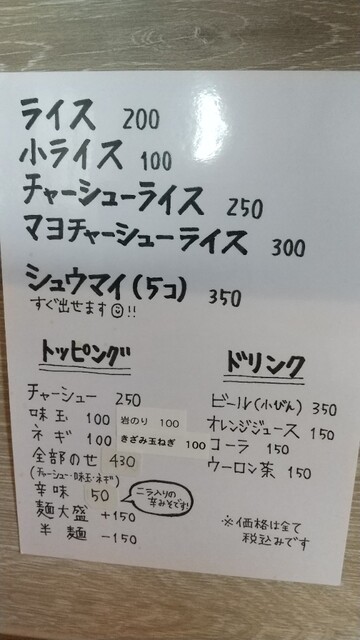 ライス 200
小ライス 100
チャーシューライス 250
マヨチャーシューライス 300
シュウマイ(5コ) 350
すぐ出せます☺!!
トッピング
チャーシュー 250
味玉 100
岩のり 100
ネギ 100
きざみ玉ねぎ 100
全部のせ 430
(チャーシュー・味玉・ネギ)
辛味 50
ニラ入りの
辛みそです!
麺大盛 +150
半麺 -150
ドリンク
ビール(小びん) 350
オレンジジュース 150
コーラ 150
ウーロン茶 150
※価格は全て
税込みです